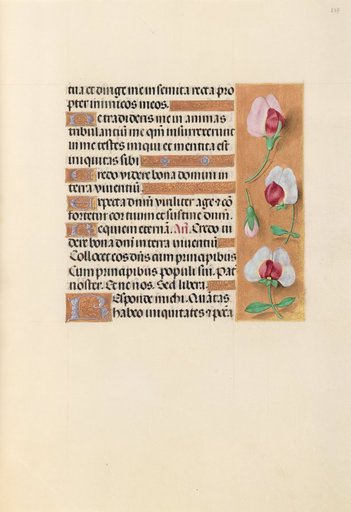 tua et dirige me in semita recta pro
pter inimicos meos.
Ne tradideris me in animas
tribulantiū me qm̄ insurrexerunt
in me testes iniqui et mentita est
iniquitas sibi
Credo videre bona domini in
terra viventiū.
Expecta dn̄m viriliter age et cō
fortetur cor tuum et sustine dn̄m.
Requiem eternā. An̄. Credo vi
dere bona dn̄i in terra viventiū
Collocet eos dn̄s cum principibus
Cum principibus populi sui. Pat
noster. Et ne nos. Sed libera.
Responde michi. Quātas
habeo iniquitates et pctā